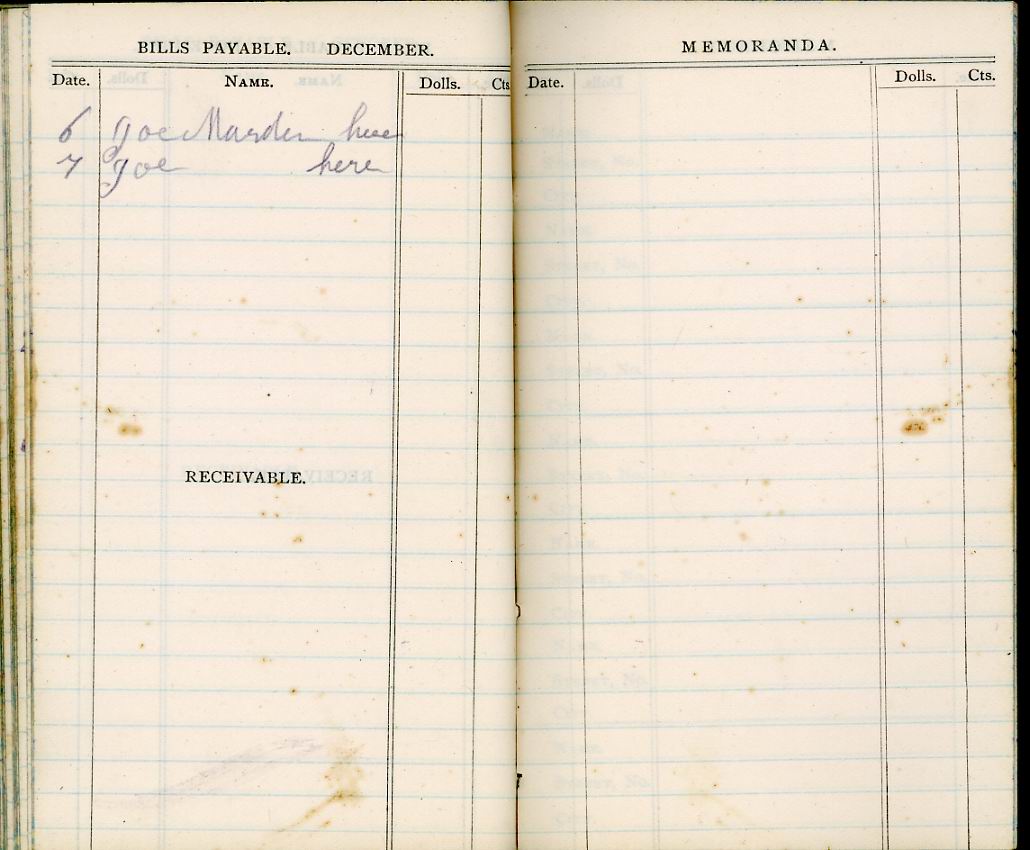 BILLS PAYABLE. DECEMBER.
Date. NAME. Dolls. Cts
6 Joe Marden here
7 Joe here
RECEIVABLE.
MEMORANDA.
Date. Dolls. Cts.